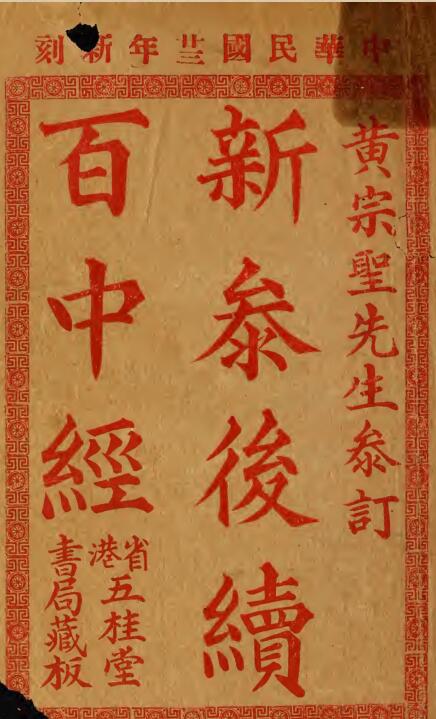 中華民國廿三年新刻
黃宗聖先生叅訂
新叅後續
百中經
省港五桂堂
書局藏板